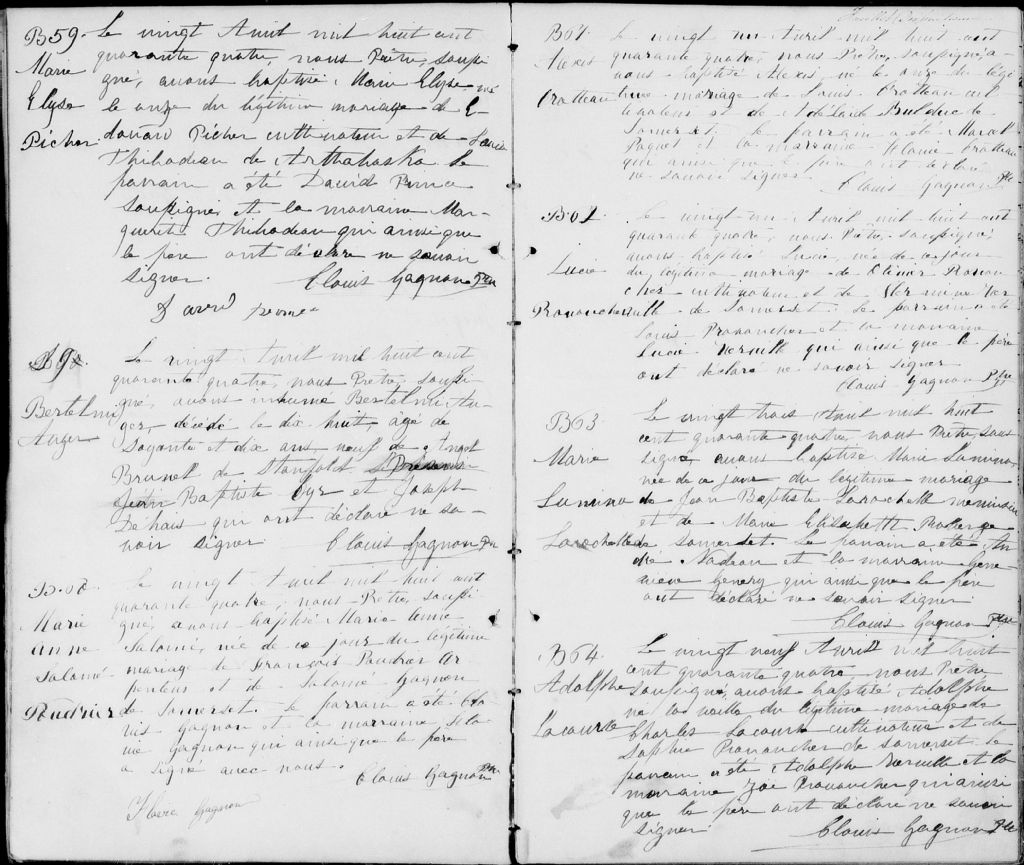 B59
Marie
Elyse
Picher
Le vingt Avril mil huit cent
quarante quatre, nous Prêtre, soussi
gné, avons baptisé Marie Elyse née
le onze du légitime mariage de E-
douard Picher cultivateur et de
Thibodeau de Arthabaska le
parrain a été David Prince
soussigné et la marraine Mar-
guerite Thibodeau qui ainsi que
le père ont déclaré ne savoir
signer.
Clovis Gagnon Ptre
D avid Prince
Bertelmi
Auger
Le vingt Avril mil huit cent
quarante quatre, nous Prêtre, soussi-
gné, avons inhumé Bertelmi Au-
ger, décédé le dix huit, âgé de
soixante et dix ans, veuf de
Brunet de Stanfold
Jean Baptiste Cyr et Joseph
Dehais qui ont déclaré ne sa-
voir signer
Clovis Gagnon Ptre
B.60
Marie
anne
Salomé
Poudrier
Le vingt Avril mil huit cent
quarante quatre, nous Prêtre, soussi
gné, avons baptisé Marie anne
Salomé, née de ce jour du légitime
mariage de François Poudrier ar
penteur et de Salomé Gagnon
de Somerset. Le parrain a été Clo-
vis Gagnon et la marraine
Gagnon qui ainsi que le père
a signé avec nous.
Clovis Gagnon Ptre
Gagnon
B61
Alexis
Croteau
Le vingt un Avril mil huit cent
quarante quatre, nous Prêtre, soussigné, a-
vons baptisé Alexis, né le onze du légi
time mariage de Louis Croteau cul
tivateur et de Adelaide Bulduc de
Somerset, le parrain a été
Paquet et la marraine Croteau
qui ainsi que le père ont déclaré
ne savoir signer
Clovis Gagnon Ptre
B62
Lucie
Provancher
Le vingt un Avril mil huit cent
quarante quatre, nous Prêtre, soussigné,
avons baptisé Lucie, née de ce jour
du légitime mariage de Olivier Provan
cher cultivateur et de Hermine Ver
ville de Somerset. Le parrain a été
Louis Provancher et la marraine
Lucie Verville qui ainsi que le père
ont déclaré ne savoir signer
Clovis Gagnon Ptre
B63
Marie
Lumina
Larochelle
Le vingt trois Avril mil huit
cent quarante quatre, nous Prêtre, sous
signé, avons baptisé Marie Lumina,
née de ce jour du légitime mariage
de Jean Baptiste Larochelle menuisier
et de Marie Elisabeth Roberge
de Somerset. Le parrain a été An
dré Nadeau et la marraine Gene-
viève Genery qui ainsi que le père
ont déclaré ne savoir signer
Clovis Gagnon Ptre
B64
Adolphe
Lacourse
Le vingt neuf Avril mil huit
cent quarante quatre nous Prêtre
soussigné, avons baptisé Adolphe
né la veille du légitime mariage de
Charles Lacourse cultivateur et de
Sophie Provancher de Somerset. Le
parrain a été Adolphe Verville et la
marraine Zoé Provancher qui ainsi
que le père ont déclaré ne savoir
signer
Clovis Gagnon Ptre